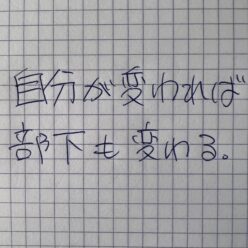 自分が変われば
部下も変わる。